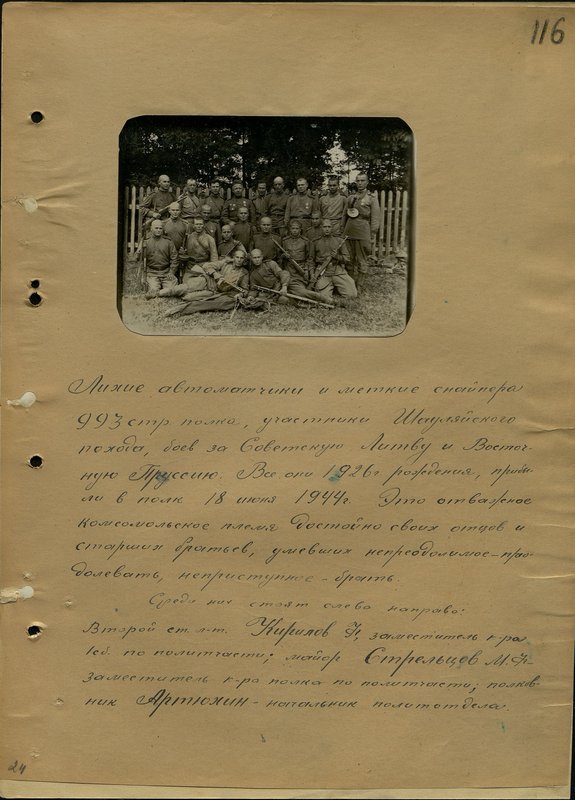 116
Лихие автоматчики и меткие снайпера
993 стр. полка, участники Шауляйского
похода, боев за Советскую Литву и Восточ-
ную Пруссию. Все они 1926 г рождения, прибы-
ли в полк 18 июня 1944 г. Это отважное
комсомольское племя достойно своих отцов и
старших братьев, умевших непреодолимое - прео-
долевать, неприступное - брать.
Среди них стоят слева направо:
Второй ст. л-т. Кирилов заместитель к-ра
1сб. по политчасти; майор Стрельцов М.
заместитель к-ра полка по политчасти; полков-
ник Артюхин - начальник политотдела.
24